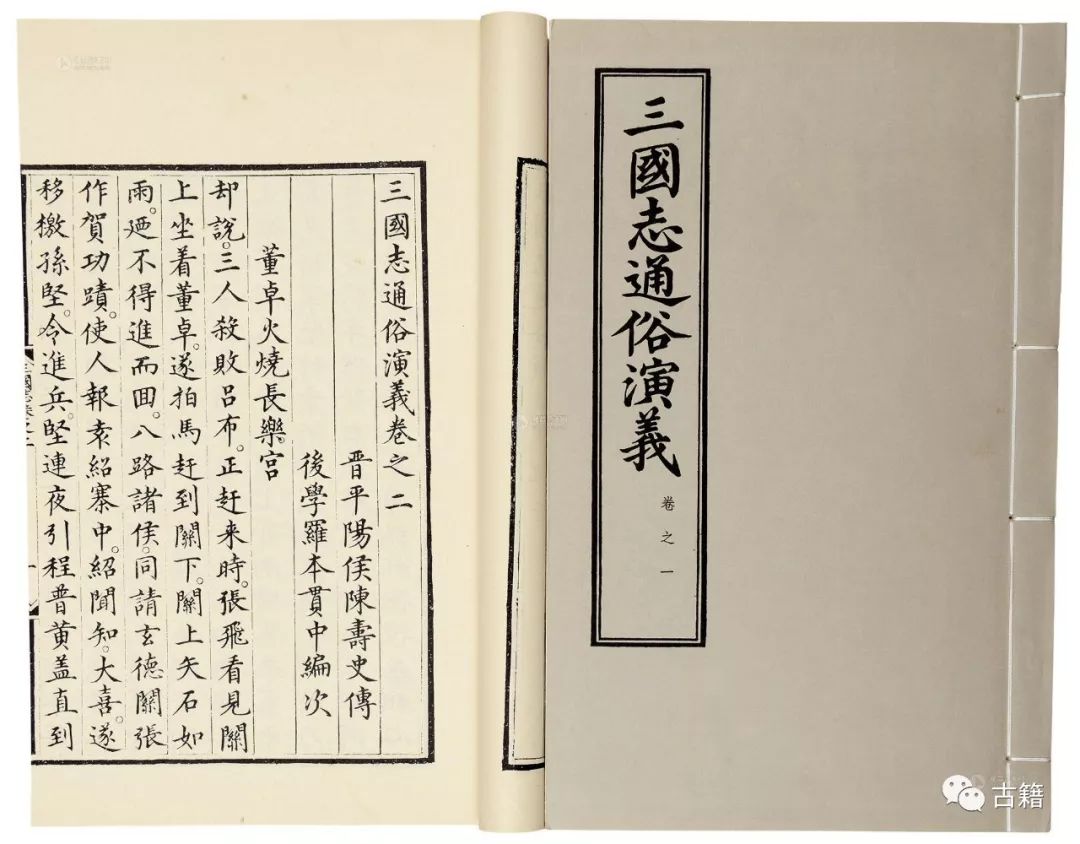 三國志通俗演義
卷之一
三國志通俗演義卷之二
晉平陽侯陳壽史傳
後學羅本貫中編次
董卓火燒長樂宮
却說。三人殺敗呂布。正赶来時。張飛看見關
上坐着董卓。遂拍馬赶到關下。關上矢石如
雨。廼不得進而囬。八路諸侯。同請玄德關張
作賀功蹟。使人報袁紹寨中。紹聞知。大喜。遂
移檄孫堅。令進兵。堅連夜引程普黄盖直到
古籍